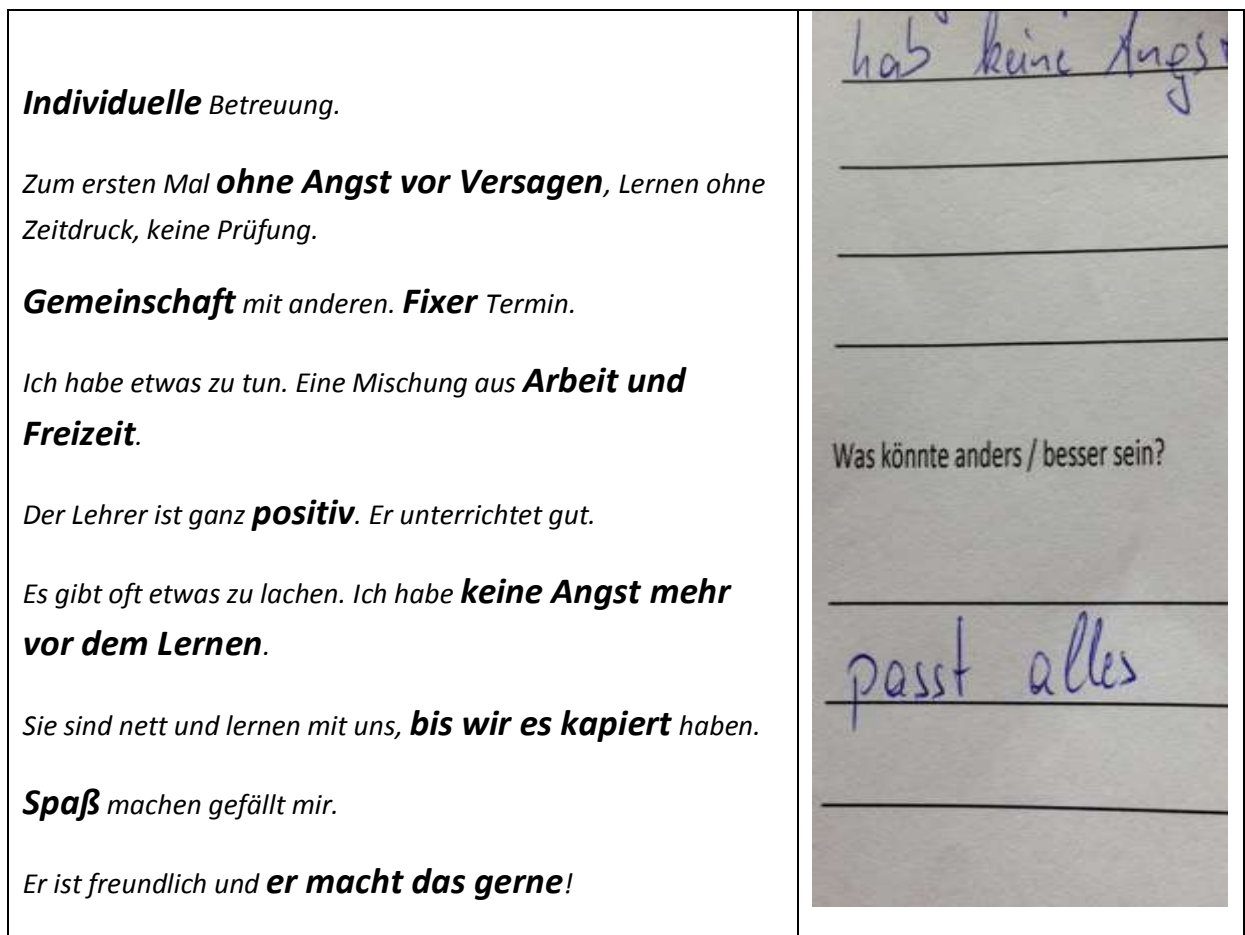 Individuelle Betreuung.
Zum ersten Mal ohne Angst vor Versagen, Lernen ohne
Zeitdruck, keine Prüfung.
Gemeinschaft mit anderen. Fixer Termin.
Ich habe etwas zu tun. Eine Mischung aus Arbeit und
Freizeit.
Der Lehrer ist ganz positiv. Er unterrichtet gut.
Es gibt oft etwas zu lachen. Ich habe keine Angst mehr
vor dem Lernen.
Sie sind nett und lernen mit uns, bis wir es kapiert haben.
Spaß machen gefällt mir.
Er ist freundlich und er macht das gerne!
hab keine Angst
Was könnte anders / besser sein?
passt alles